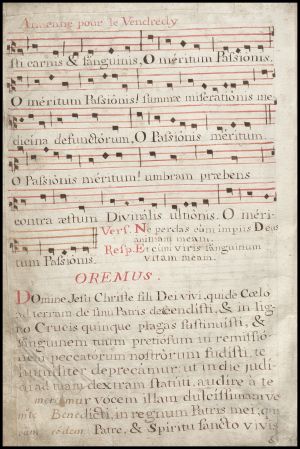 Antienne pour le Vendredy
sti carnis & sanguinis, O méritum Passiónis.
O méritum Passiónis! summæ miserationis me
dicina defunctórum, O Passiónis méritum.
O Passiónis méritum! umbram præbens
contra æstum Divinális ultiónis. O méri-
tum Passiónis.
Vers. Ne perdas cum impiis Deus
animam meam.
Resp. Et cum viris sanguinum
vitam meam.
OREMUS.
Domine Jesu Christe fili Dei vivi, qui de Cœlo
ad terram de sinu Patris descendisti, & in lig-
no Crucis quinque plagas sustinuisti, &
sanguinem tuum pretiosum in remissió-
nem peccatorum nostrórum fudisti, te
humiliter deprecamur: ut in die judí-
cii ad tuam dextram statuti, audíre à te
mereamur vocem illam dulcissimam ve
níte Benedicti, in regnum Patris mei; qui
cum eódem Patre, & Spíritu sancto vivis